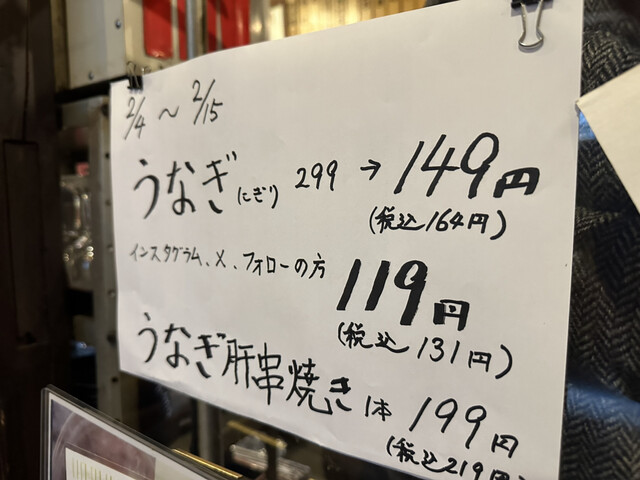 2/4 〜 2/15
うなぎ(にぎり) 299 → 149円
(税込164円)
インスタグラム、X、フォローの方 119円
(税込131円)
うなぎ肝串焼き 1本 199円
(税込219円